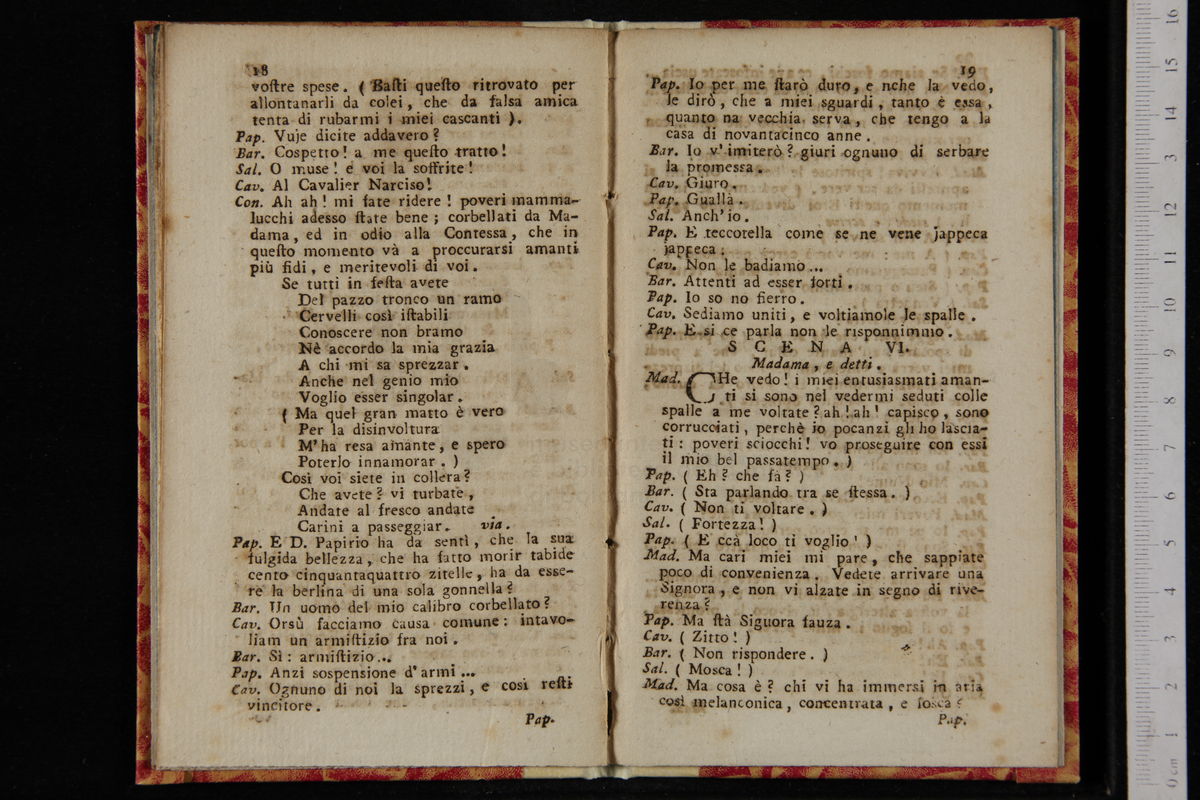 18
voſtre spese. ( Baſti queſto ritrovato per
allontanarli da colei, che da falsa amica
tenta di rubarmi i miei cascanti ).
Pap. Vuje dicite addavero?
Bar. Cospetto! a me queſto tratto!
Sal. O muse! e voi la soffrite!
Cav. Al Cavalier Narciso!
Con. Ah ah! mi fate ridere! poveri mamma-
lucchi adesso ſtate bene; corbellati da Ma-
dama, ed in odio alla Contessa, che in
queſto momento và a proccurarsi amanti
più fidi, e meritevoli di voi.
Se tutti in feſta avete
Del pazzo tronco un ramo
Cervelli così iſtabili
Conoscere non bramo
Nè accordo la mia grazia
A chi mi sa sprezzar.
Anche nel genio mio
Voglio esser singolar.
( Ma quel gran matto è vero
Per la disinvoltura
M'ha resa amante, e spero
Poterlo innamorar. )
Così voi siete in collera?
Che avete? vi turbate,
Andate al fresco andate
Carini a passeggiar. via.
Pap. E D. Papirio ha da sentì, che la sua
fulgida bellezza, che ha fatto morir tabide
cento cinquantaquattro zitelle, ha da esse-
re la berlina di una sola gonnella?
Bar. Un uomo del mio calibro corbellato?
Cav. Orsù facciamo causa comune: intavo-
liam un armiſtizio fra noi.
Bar. Sì: armiſtizio...
Pap. Anzi sospensione d'armi...
Cav. Ognuno di noi la sprezzi, e così reſti
vincitore.
Pap.
19
Pap. Io per me ſtarò duro, e nche la vedo,
le dirò, che a miei sguardi, tanto è essa,
quanto na vecchia serva, che tengo a la
casa di novantacinco anne.
Bar. Io v'imiterò? giuri ognuno di serbare
la promessa.
Cav. Giuro.
Pap. Guallà.
Sal. Anch'io.
Pap. E teccotella come se ne vene jappeca
jappeca.
Cav. Non le badiamo...
Bar. Attenti ad esser forti.
Pap. Io so no fierro.
Cav. Sediamo uniti, e voltiamole le spalle.
Pap. E si ce parla non le risponnimmo.
SCENA VI.
Madama, e detti.
Mad. CHe vedo! i miei entusiasmati aman-
ti si sono nel vedermi seduti colle
spalle a me voltate? ah! ah! capisco, sono
corrucciati, perchè io pocanzi gli ho lascia-
ti: poveri sciocchi! vo proseguire con essi
il mio bel passatempo. )
Pap. ( Eh? che fa? )
Bar. ( Sta parlando tra se ſtessa. )
Cav. ( Non ti voltare. )
Sal. ( Fortezza! )
Pap. ( E ccà loco ti voglio! )
Mad. Ma cari miei mi pare, che sappiate
poco di convenienza. Vedete arrivare una
Signora, e non vi alzate in segno di rive-
renza?
Pap. Ma ſtà Siguora fauza.
Cav. ( Zitto! )
Bar. ( Non rispondere. )
Sal. ( Mosca! )
Mad. Ma cosa è? chi vi ha immersi in aria
così melanconica, concentrata, e fosca?
Pap.
0 cm 1 2 3 4 5 6 7 8 9 10 11 12 13 14 15 16